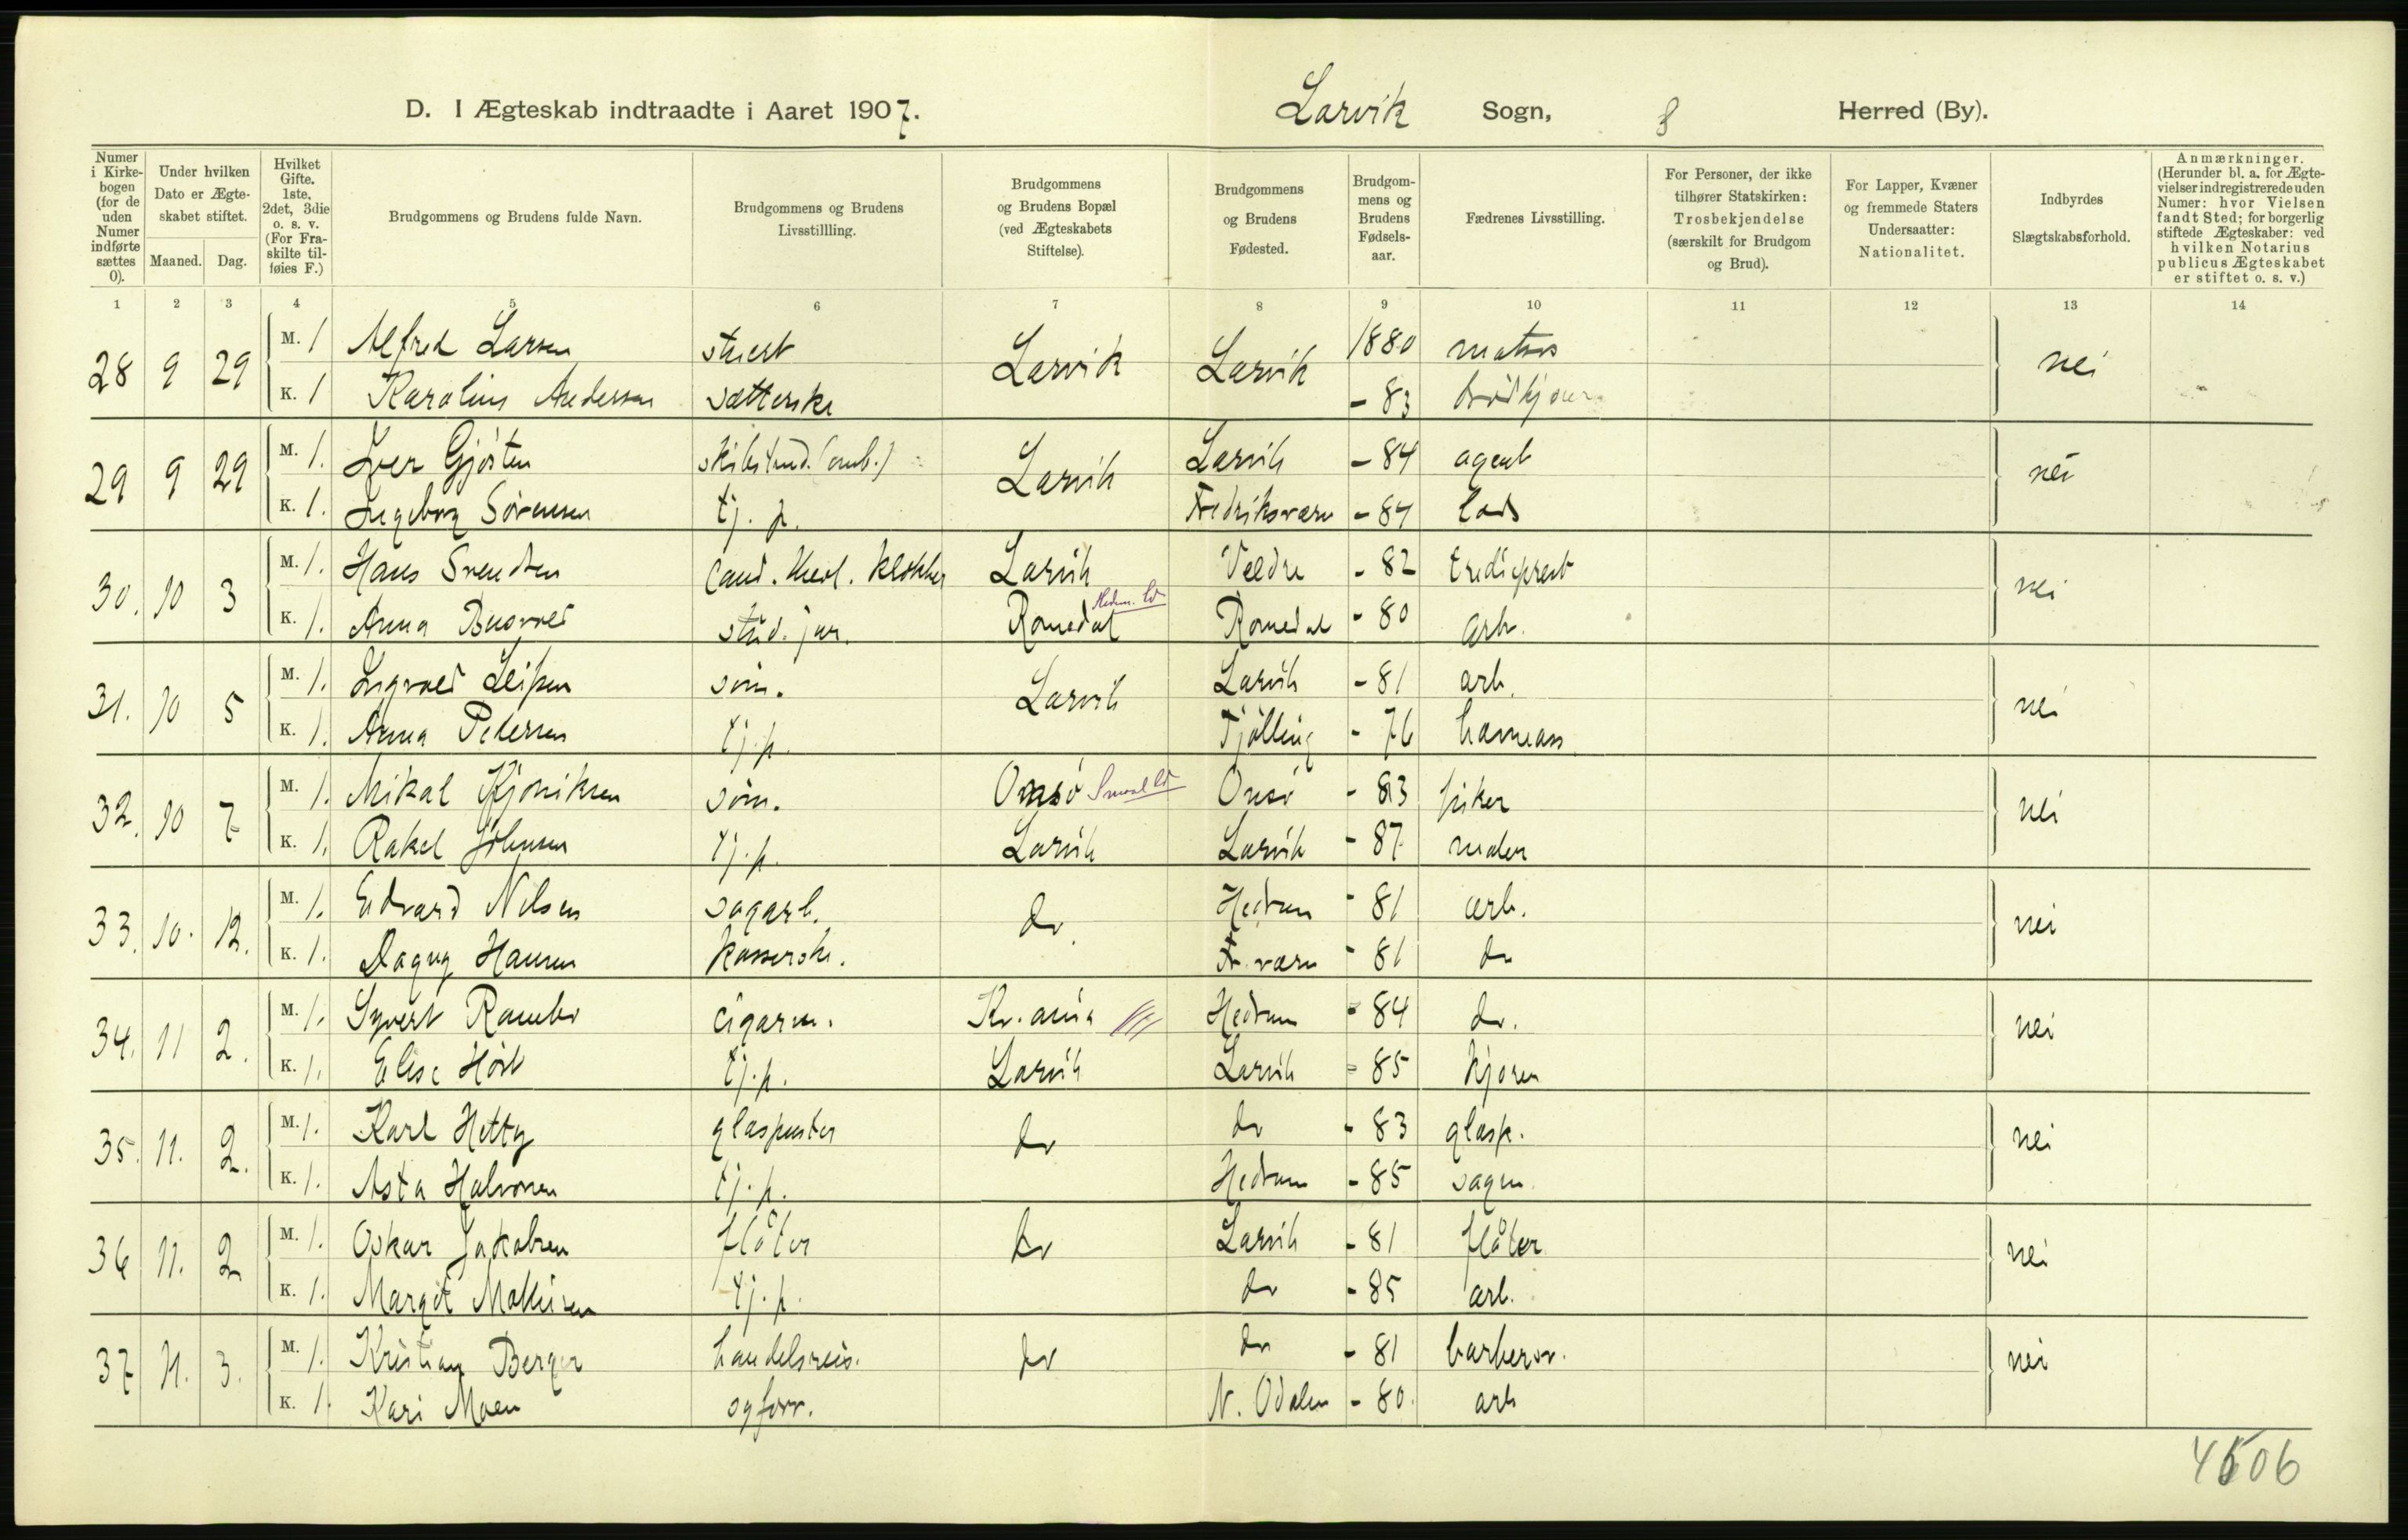 D. I Ægteskab indtraadte i Aaret 1907. Larvik Sogn, 8 Herred (By).
Numer i Kirkebogen (for de uden Numer indførte sættes 0).
Under hvilken Dato er Ægteskabet stiftet.
Maaned. Dag.
Hvilket Gifte. 1ste, 2det, 3die o. s. v. (For Fraskilte tilføies F.)
Brudgommens og Brudens fulde Navn.
Brudgommens og Brudens Livsstillling.
Brudgommens og Brudens Bopæl (ved Ægteskabets Stiftelse).
Brudgommens og Brudens Fødested.
Brudgommens og Brudens Fødselsaar.
Fædrenes Livsstilling.
For Personer, der ikke tilhører Statskirken: Trosbekjendelse (særskilt for Brudgom og Brud).
For Lapper, Kvæner og fremmede Staters Undersaatter: Nationalitet.
Indbyrdes Slægtskabsforhold.
Anmærkninger. (Herunder bl. a. for Ægtevielser indregistrerede uden Numer: hvor Vielsen fandt Sted; for borgerlig stiftede Ægteskaber: ved hvilken Notarius publicus Ægteskabet er stiftet o. s. v.)
1 2 3 4 5 6 7 8 9 10 11 12 13 14
28 9 29 M. 1 Alfred Larsen stuert Larvik Larvik 1880 matros nei
K. 1 Karoline Andersen sætterske - 83 brødkjører
29 9 29 M. 1. Iver Gjøsten skibstømd. (omb.) Larvik Larvik - 84 agent nei
K. 1. Ingeborg Sørensen tj. p. Fredriksværn - 84 lods
30. 10 3 M. 1. Hans Svendsen Cand. theol. klokker Larvik Veldre - 82 tredieprest nei
K. 1. Anna Busvold stud. jur. Romedal Hedm. Romedal - 80 arb.
31. 10 5 M. 1. Ingvald Leifsen søm. Larvik Larvik - 81 arb. nei
K. 1. Anna Petersen tj. p. Tjølling - 76 havneass
32. 10 7 M. 1. Mikal Kjøniksen søm. Onsø Smaal Onsø - 83 fisker nei
K. 1. Rakel Johnsen tj. p. Larvik Larvik - 87 maler
33. 10. 12. M. 1. Edvard Nilsen sagarb. do Hedrum - 81 arb. nei
K. 1. Dagny Hansen kasserske. Fr. værn - 81 do
34. 11 2. M. 1. Syvert Rambo cigarm. Kr.ania Hedrum - 84 do. nei
K. 1. Elise Høst tj. p. Larvik Larvik - 85 kjører
35. 11. 2. M. 1. Karl Hetty glaspuster do do - 83 glasp. nei
K. 1. Asta Halvorsen tj. p. Hedrum - 85 sagm.
36 11. 2 M. 1. Oskar Jakobsen fløter do Larvik - 81 fløter nei
K. 1. Margit Mathisen tj. p. do - 85 arb.
37 11. 3. M. 1. Kristian Berger handelsreis. do do - 81 barberer. nei
K. 1. Kari Moen syforr. N. Odalen - 80. arb
4506